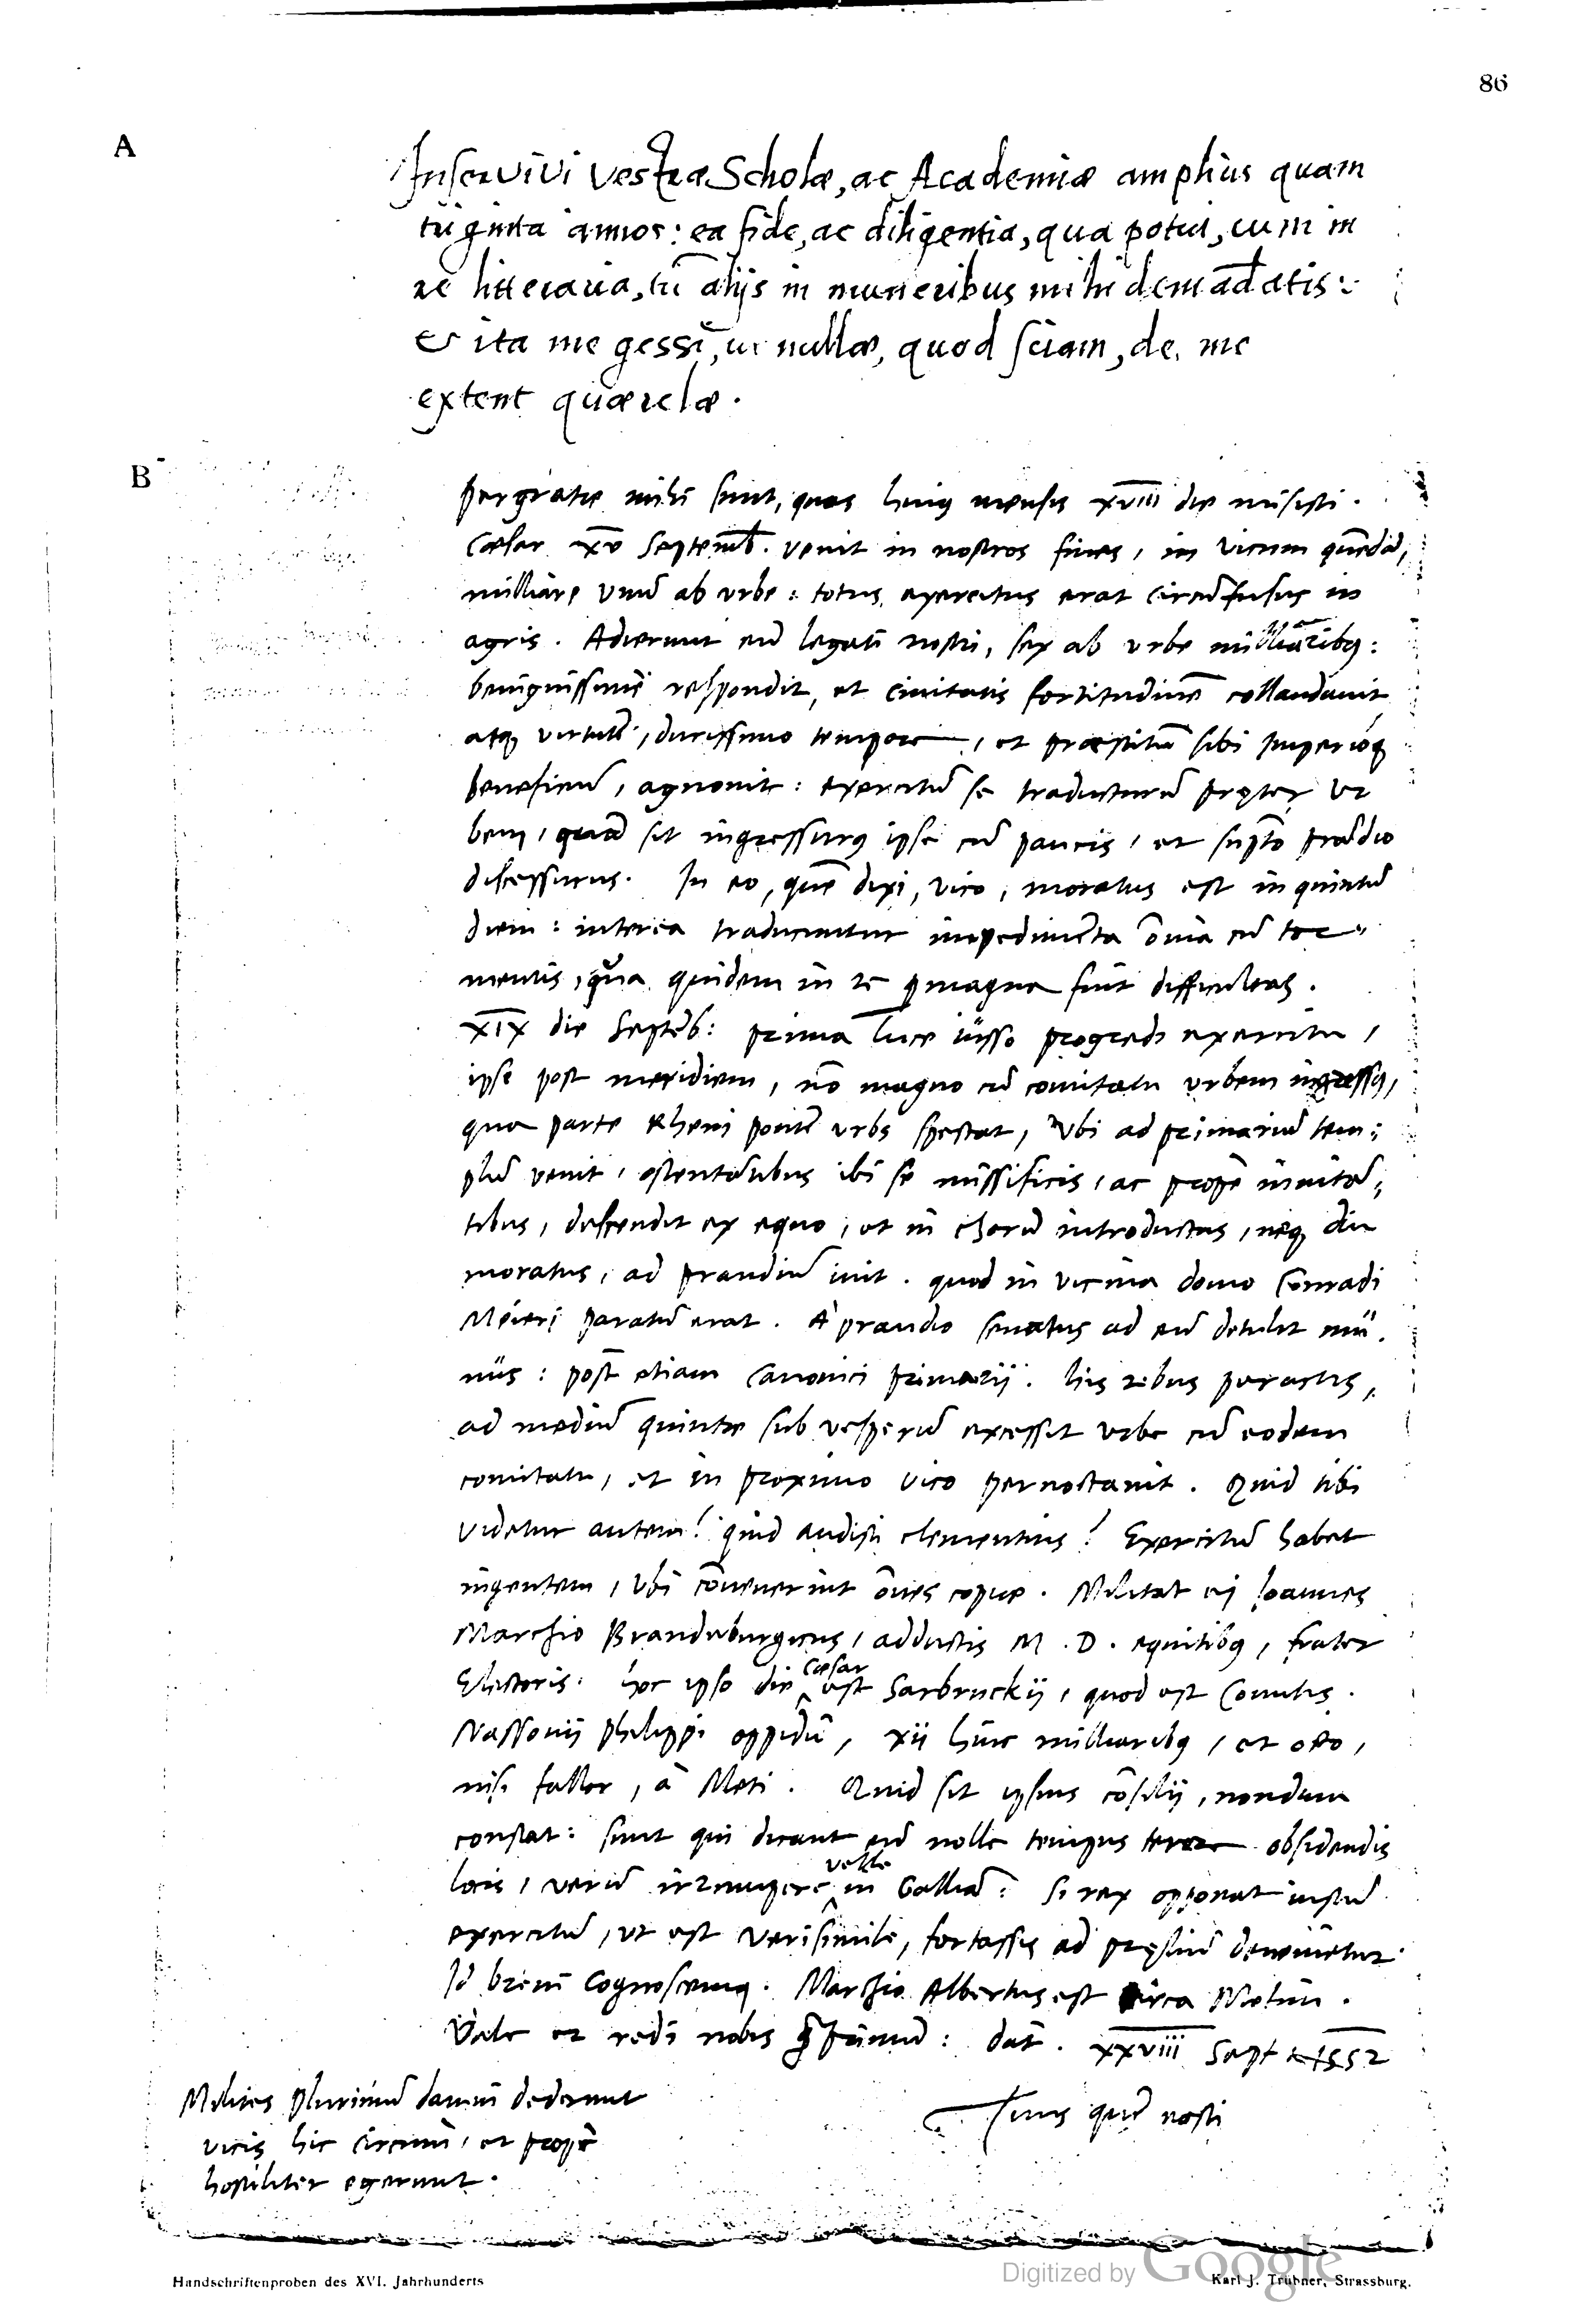 86
A
Inservivi vestræ Scholæ, ac Academiæ amplius quam
triginta annos: ea fide, ac diligentia, qua potui, cum in
re litteraria, tū alijs in muneribus mihi demādatis:
& ita me gessi, ut nullæ, quod sciam, de me
extent quærelæ.
B
Pergratæ mihi sunt, quas huiꝰ mensis xviii die misisti.
Cæsar xv Septemb. venit in nostros fines, in vicum quēdā,
milliare unū ab urbe: totus exercitus erat circūfusus in
agris. Adierunt eū legati nostri, sex ab urbe milliaribꝰ:
benignissimè respondit, et civitatis fortitudinē collaudavit
atqꝫ virtutē, durissimo tempore, et præstitū sibi Imperióqꝫ
beneficiū, agnovit: exercitū se traducturū pręter ur
bem, quā sit ingressurꝰ ipse cū paucis, et sūpto prādio
discessurus. In eo, quē dixi, vico, moratus est in quintū
diem: interea traducuntur impedimēta ōnia cū tor-
mentis, qua quidem in re permagna fuit difficultas.
XIX die Septēb: prima luce iusso progredi exercitu,
ipse post meridiem, nō magno cū comitatu urbem ingressꝰ,
qua parte Rheni pontē urbs spectat, Ubi ad primariū tem:
plū venit, ostentātibus ibi se missificis, ac propè invitā:
tibus, descendit ex equo, et in chorū introductus, neqꝫ diu
moratus, ad prandiū ivit. quod in vicina domo Conradi
Meieri paratū erat. A prandio senatus ad eū detulit mu.
nus: pòst etiam Canonici primarij. his rebus peractis,
ad mediū quintæ sub vesperū excessit urbe cū eodem
comitatu, et in proximo vico pernoctavit. Quid tibi
videtur autem? quid audisti clementius? Exercitū habet
ingentem, ubi cōvenerint ōnes copiæ. Militat ei Ioannes
Marchio Brandeburgicus, adductis M.D. equitibꝰ, frater
Electoris. hoc ipso die Cæsar est Sarbruckij, quod est Comitis
Nassovij Philippi oppidū, xii hinc milliaribꝰ, et octo,
nisi fallor, à Meti. Quid sit ipsius cōsilij, nondum
constat: sunt qui dicant eū nolle tempus terere obsidendis
locis, verū irrumpere velle in Galliā: Si rex opponat iustū
exercitū, ut est verisimile, fortassis ad pręliū devenietur
Id brevi cognoscemꝰ. Marchio Albertus est circa Metim.
Vale et redi nobis quāprimū: dat. xxviii Sept 1552
Tuus quē nosti
Milites plurimū damni dederunt
vicis hic circum, et propè
hostiliter egerunt.
Handschriftenproben des XVI. Jahrhunderts
Digitized by Google
Karl J. Trübner, Strassburg.